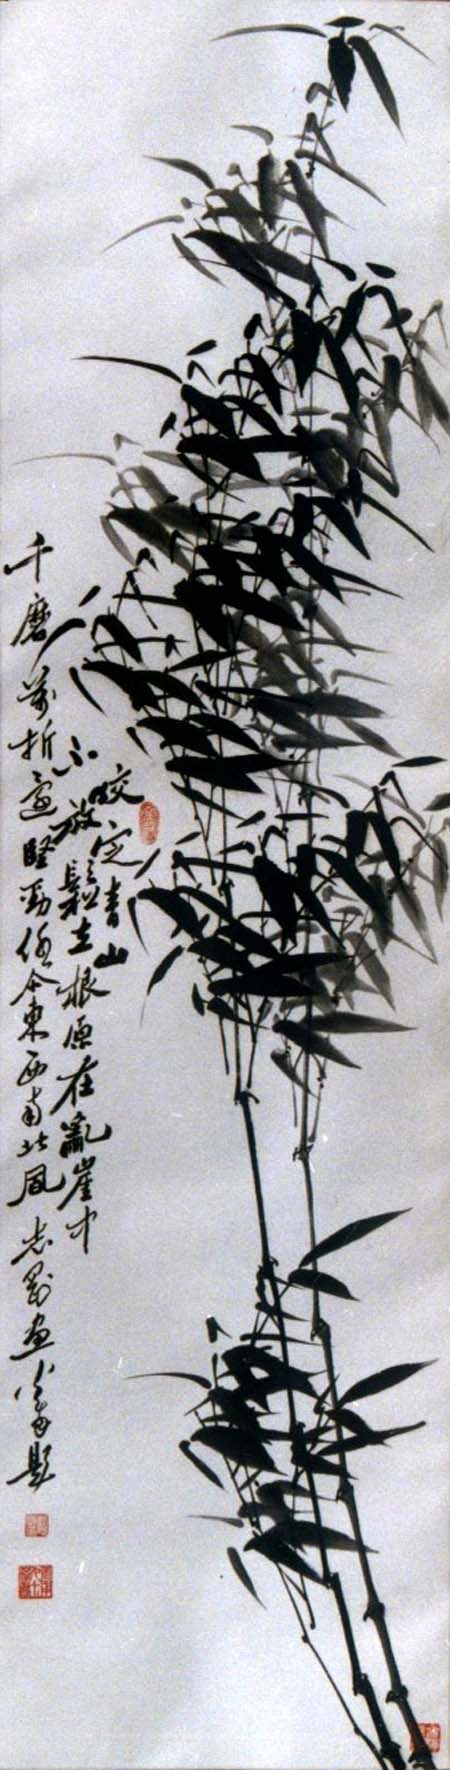 咬定青山
不放鬆立根原在亂崖中
千磨萬折還堅勁任尒東西南北風 志 画 題